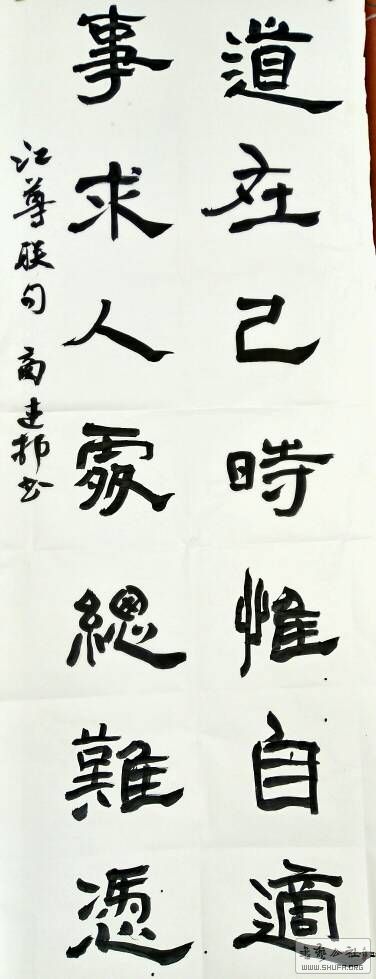 道在己時惟自適
事求人處總難憑
江尊联句 商建邦书
WWW.SHUFA.ORG